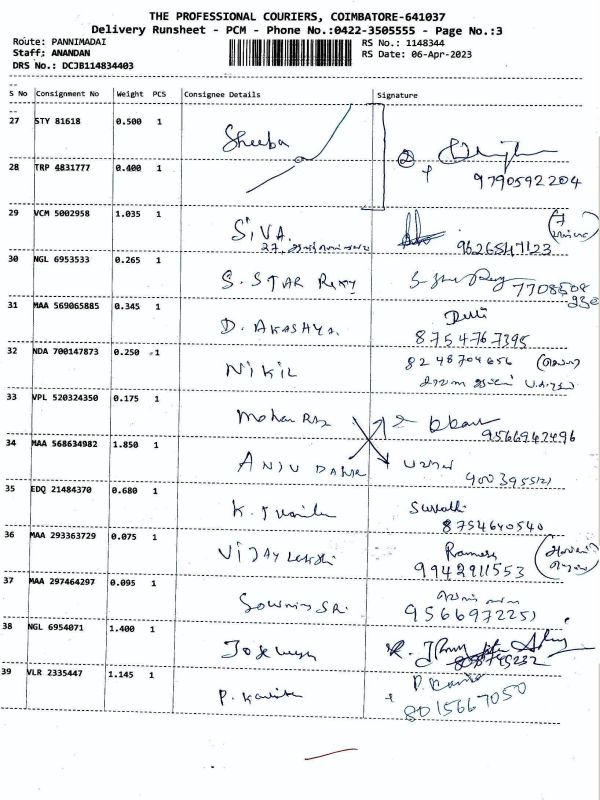 THE PROFESSIONAL COURIERS, COIMBATORE-641037
Delivery Runsheet - PCM - Phone No.:0422-3505555 - Page No.:3
Route: PANNIMADAI RS No.: 1148344
Staff: ANANDAN RS Date: 06-Apr-2023
DRS No.: DCJB114834403
S No Consignment No Weight PCS Consignee Details Signature
27 STY 81618 0.500 1 Sheeba
28 TRP 4831777 0.400 1
9790592204
29 VCM 5002958 1.035 1 SIVA.
27. 9626547123
30 NGL 6953533 0.265 1 S. STAR 7708508
31 MAA 569065885 0.345 1 D. AKASHYA.
8754767395
32 NDA 700147873 0.250 1 NIKIL 8248704656
33 VPL 520324350 0.175 1 Mohan
9566942496
34 MAA 568634982 1.850 1 ANJU
35 EDQ 21484370 0.680 1 K.
8754640540
36 MAA 293363729 0.075 1 Ramesh
9942911553
37 MAA 297464297 0.095 1
38 NGL 6954071 1.400 1
39 VLR 2335447 1.145 1 P. Kavitha
8015667050